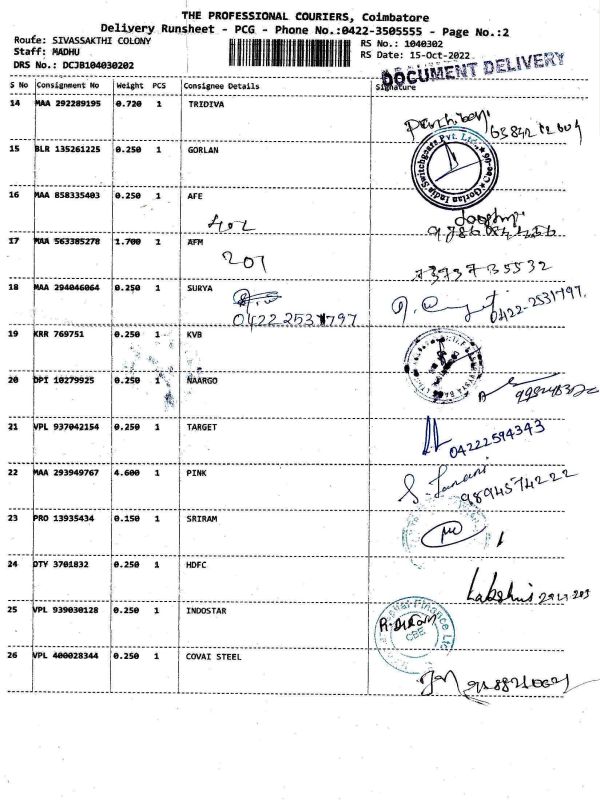 THE PROFESSIONAL COURIERS, Coimbatore
Delivery Runsheet - PCG - Phone No.:0422-3505555 - Page No.:2
Route: SIVASSAKTHI COLONY
RS No.: 1040302
Staff: MADHU
RS Date: 15-Oct-2022
DRS No.: DCJB104030202
DOCUMENT DELIVERY
S No Consignment No Weight PCS Consignee Details Signature
14 MAA 292289195 0.720 1 TRIDIVA
15 BLR 135261225 0.250 1 GORLAN
Gorlan India Switchgears Pvt. Ltd.
16 MAA 858335403 0.250 1 AFE
402
17 MAA 563385278 1.700 1 AFM
201
7373735532
18 MAA 294046064 0.250 1 SURYA
0422 2531797
0422-2531797
19 KRR 769751 0.250 1 KVB
20 DPI 10279925 0.250 1 NAARGO
21 VPL 937042154 0.250 1 TARGET
04222594343
22 MAA 293949767 4.600 1 PINK
9894574222
23 PRO 13935434 0.150 1 SRIRAM
24 DTY 3701832 0.250 1 HDFC
25 VPL 939030128 0.250 1 INDOSTAR
Finance Ltd
CBE
26 VPL 400028344 0.250 1 COVAI STEEL